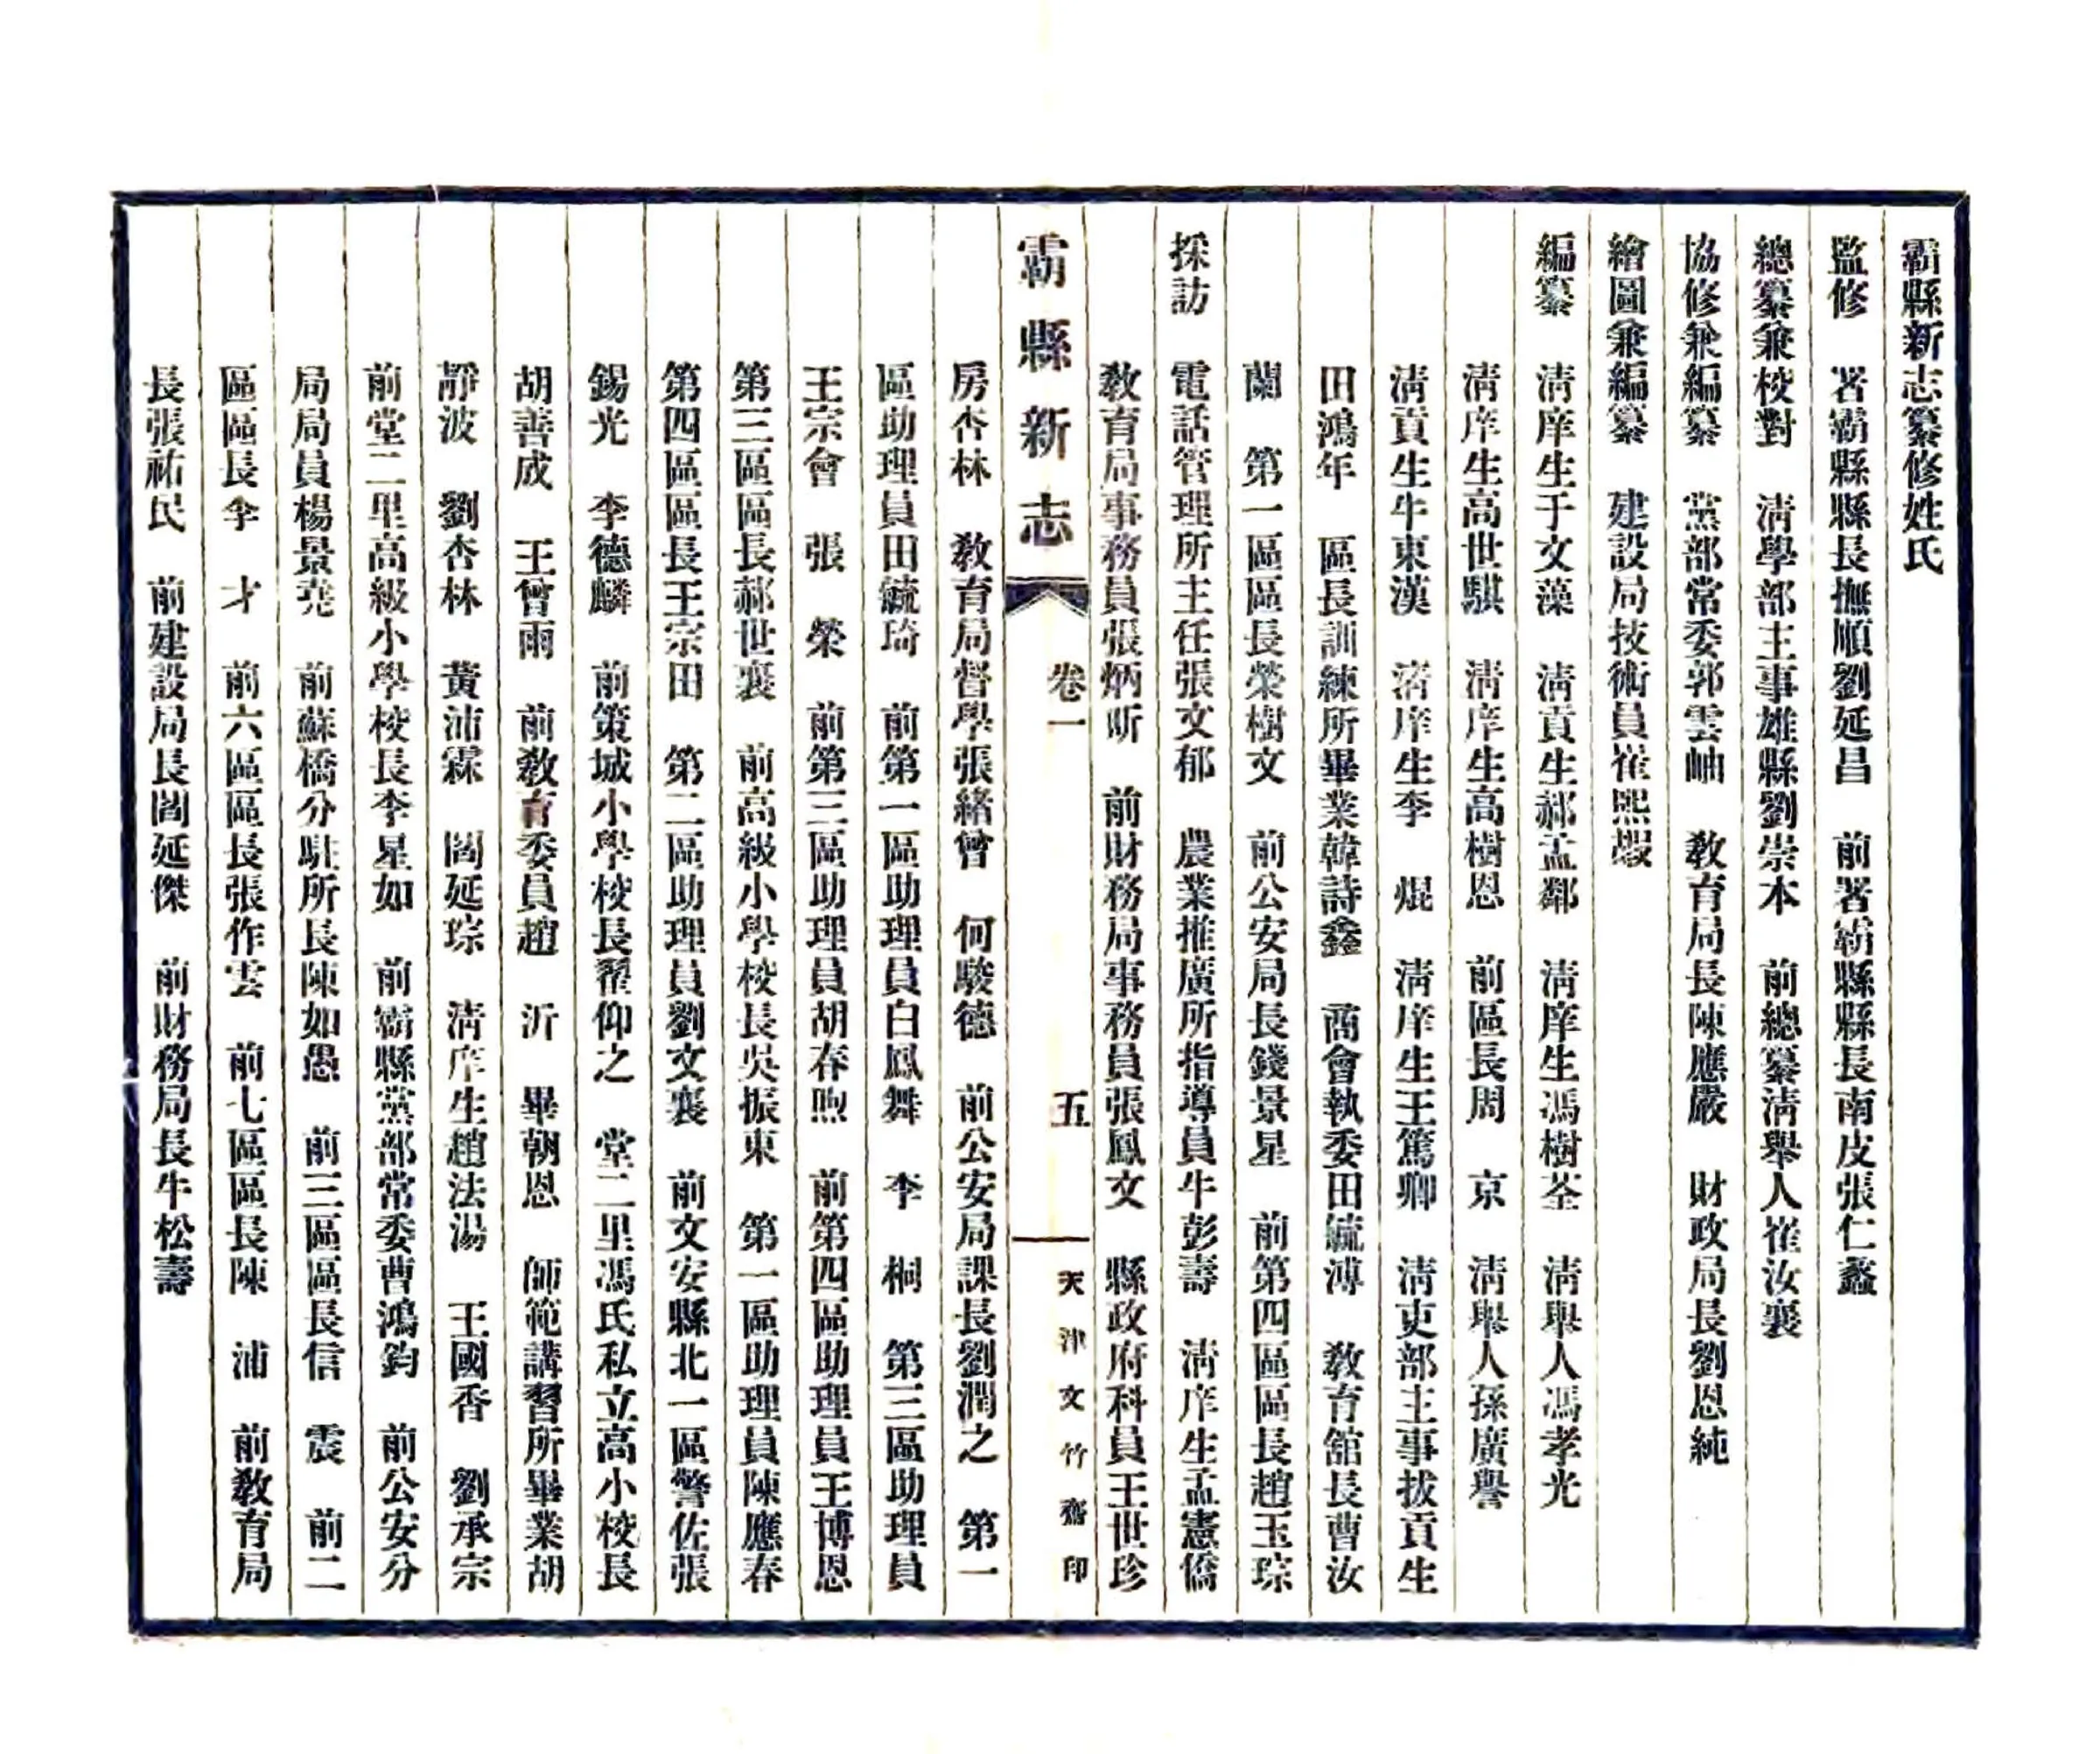 霸縣新志纂修姓氏
監修　署霸縣縣長撫順劉延昌　前署霸縣縣長南皮張仁蠡
總纂兼校對　清學部主事雄縣劉崇本　前總纂清舉人崔汝襄
協修兼編纂　黨部常委郭雲岫　教育局長陳應嚴　財政局長劉恩純
繪圖兼編纂　建設局技術員崔熙嘏
編纂　清庠生于文藻　清貢生郝孟鄰　清庠生馮樹荃　清舉人馮孝光
清庠生高世騏　清庠生高樹恩　前區長周　京　清舉人孫廣譽
清貢生牛東漢　清庠生李　焜　清庠生王篤卿　清吏部主事拔貢生
田鴻年　區長訓練所畢業韓詩鑫　商會執委田毓溥　教育舘長曹汝
蘭　第一區區長榮樹文　前公安局長錢景星　前第四區區長趙玉琮
採訪　電話管理所主任張文郁　農業推廣所指導員牛彭壽　清庠生孟憲僑
教育局事務員張炳昕　前財務局事務員張鳳文　縣政府科員王世珍
霸縣新志　卷一　五　天津文竹齋印
房杏林　教育局督學張緒曾　何駿德　前公安局課長劉潤之　第一
區助理員田毓琦　前第一區助理員白鳳舞　李　桐　第三區助理員
王宗會　張　榮　前第三區助理員胡春煦　前第四區助理員王博恩
第三區區長郝世襄　前高級小學校長吳振東　第一區助理員陳應春
第四區區長王宗田　第二區助理員劉文襄　前文安縣北一區警佐張
錫光　李德麟　前策城小學校長翟仰之　堂二里馮氏私立高小校長
胡善成　王曾雨　前教育委員趙　沂　畢朝恩　師範講習所畢業胡
靜波　劉杏林　黃沛霖　閻延琮　清庠生趙法湯　王國香　劉承宗
前堂二里高級小學校長李星如　前霸縣黨部常委曹鴻鈞　前公安分
局局員楊景堯　前蘇橋分駐所長陳如愚　前三區區長信　震　前二
區區長李　才　前六區區長張作雲　前七區區長陳　浦　前教育局
長張祐民　前建設局長閻延傑　前財務局長牛松壽